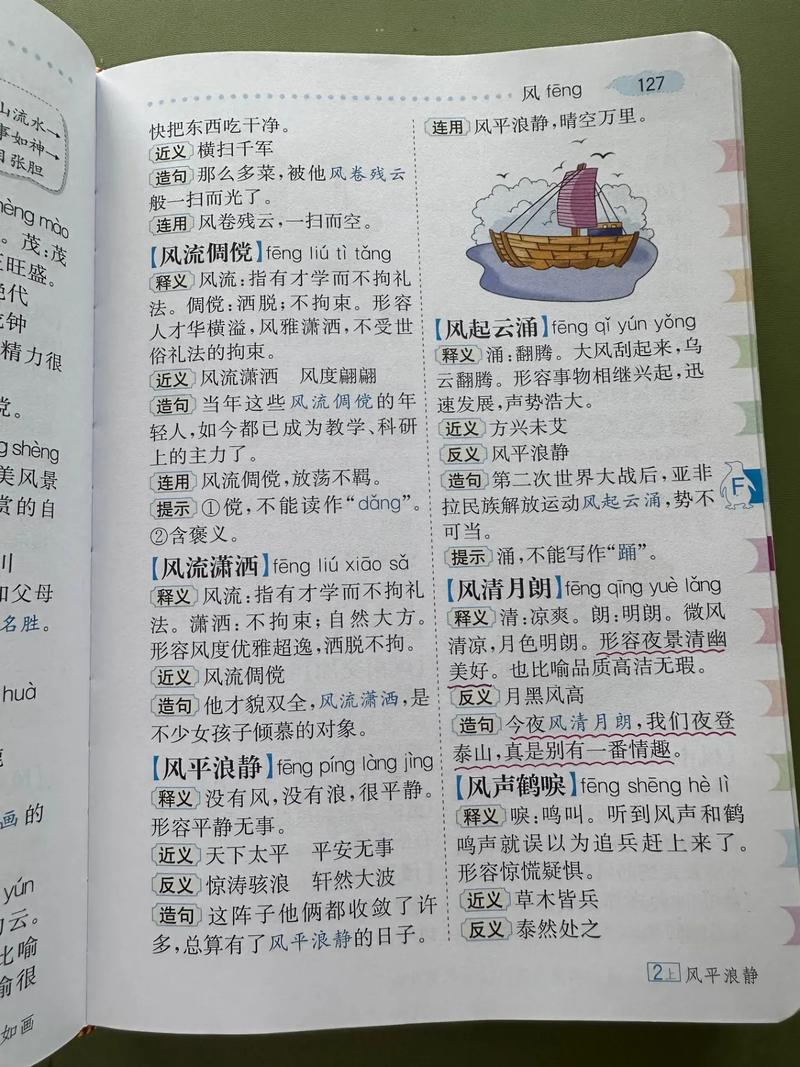 山流水→
事如神→
目张胆
mèng mào
。茂：茂
王旺盛。
绝代
精力很
党。
shèng
美风景
赏的自
川
和父母
名胜。
huà
画的
yún
力云。
比喻
喻很
如画
风 fēng 127
快把东西吃干净。
近义 横扫千军
造句 那么多菜，被他风卷残云
般一扫而光了。
连用 风卷残云，一扫而空。
【风流倜傥】fēng liú tì tǎng
释义 风流：指有才学而不拘礼
法。倜傥：洒脱；不拘束。形容
人才华横溢，风雅潇洒，不受世
俗礼法的拘束。
近义 风流潇洒 风度翩翩
造句 当年这些风流倜傥的年
轻人，如今都已成为教学、科研
上的主力了。
连用 风流倜傥，放荡不羁。
提示 ①傥，不能读作“dǎng”。
②含褒义。
【风流潇洒】fēng liú xiāo sǎ
释义 风流：指有才学而不拘礼
法。潇洒：不拘束；自然大方。
形容风度优雅超逸，洒脱不拘。
近义 风流倜傥
造句 他才貌双全，风流潇洒，是
不少女孩子倾慕的对象。
【风平浪静】fēng píng làng jìng
释义 没有风，没有浪，很平静。
形容平静无事。
近义 天下太平 平安无事
反义 惊涛骇浪 轩然大波
造句 这阵子他俩都收敛了许
多，总算有了风平浪静的日子。
连用 风平浪静，晴空万里。
【风起云涌】fēng qǐ yún yǒng
释义 涌：翻腾。大风刮起来，乌
云翻腾。形容事物相继兴起，迅
速发展，声势浩大。
近义 方兴未艾
反义 风平浪静
造句 第二次世界大战后，亚非
拉民族解放运动风起云涌，势不
可当。
提示 涌，不能写作“踊”。
【风清月朗】fēng qīng yuè lǎng
释义 清：凉爽。朗：明朗。微风
清凉，月色明朗。形容夜景清幽
美好。也比喻品质高洁无瑕。
反义 月黑风高
造句 今夜风清月朗，我们夜登
泰山，真是别有一番情趣。
【风声鹤唳】fēng shēng hè lì
释义 唳：鸣叫。听到风声和鹤
鸣声就误以为追兵赶上来了。
形容惊慌疑惧。
近义 草木皆兵
反义 泰然处之
F
2上 风平浪静